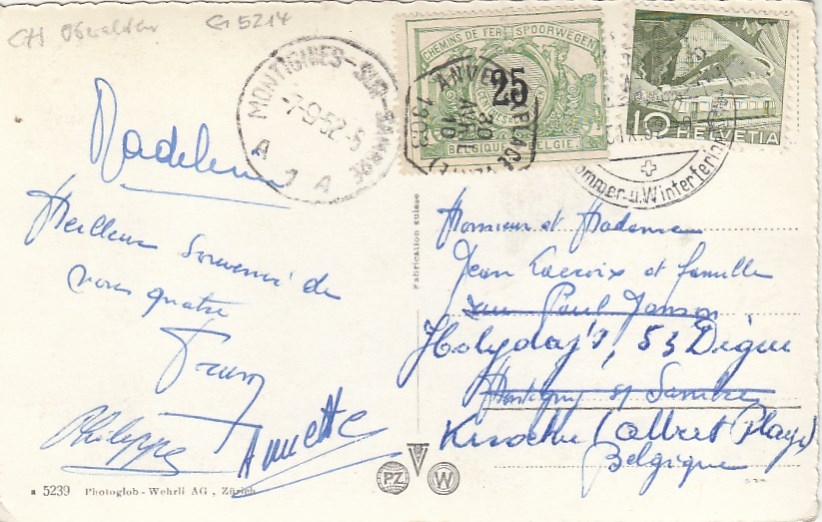 CH Obwalden G 5214
MONTIGNIES-SUR-SAMBRE
-7-9-52-5
A 1 A
CHEMINS DE FER SPOORWEGEN
25
ANVERS
BELGIQUE BELGIE
10 HELVETIA
Sommer-u.Winterferien
Madeleine
Meilleur Souvenir de
nous quatre
Philippe
Annette
Fabrication suisse
Monsieur et Madame
Jean Lacroix et famille
rue Paul Janson
Holyday's, 53 Digue
Montigny s/ Sambre
Knocke (Albert Plage)
Belgique
5239 Photoglob - Wehrli AG , Zürich
PZ W